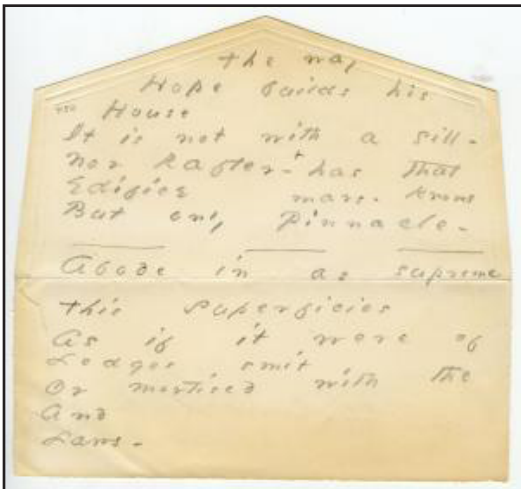 The way
Hope builds his
House
It is not with a sill -
Nor Rafter - + has that
Edifice mars - Knows
But only Pinnacle -
Abode in as supreme
This superficies
As if it were of
Ledges smit
Or mortised with the
And
Laws -